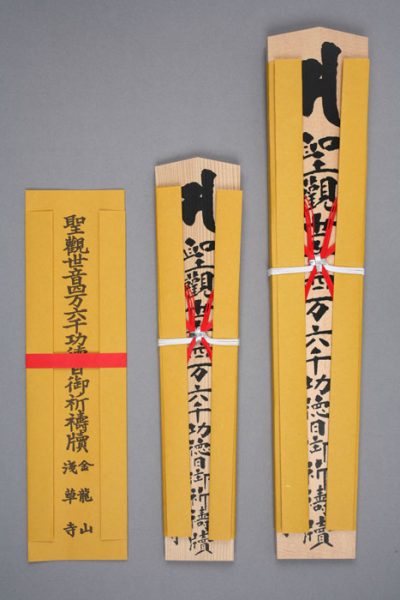 聖觀世音四万六千功徳日御祈禱牘
金龍山
淺草寺
聖觀世四万六千功徳日御祈禱牘
聖觀世四万六千功徳日御祈禱牘